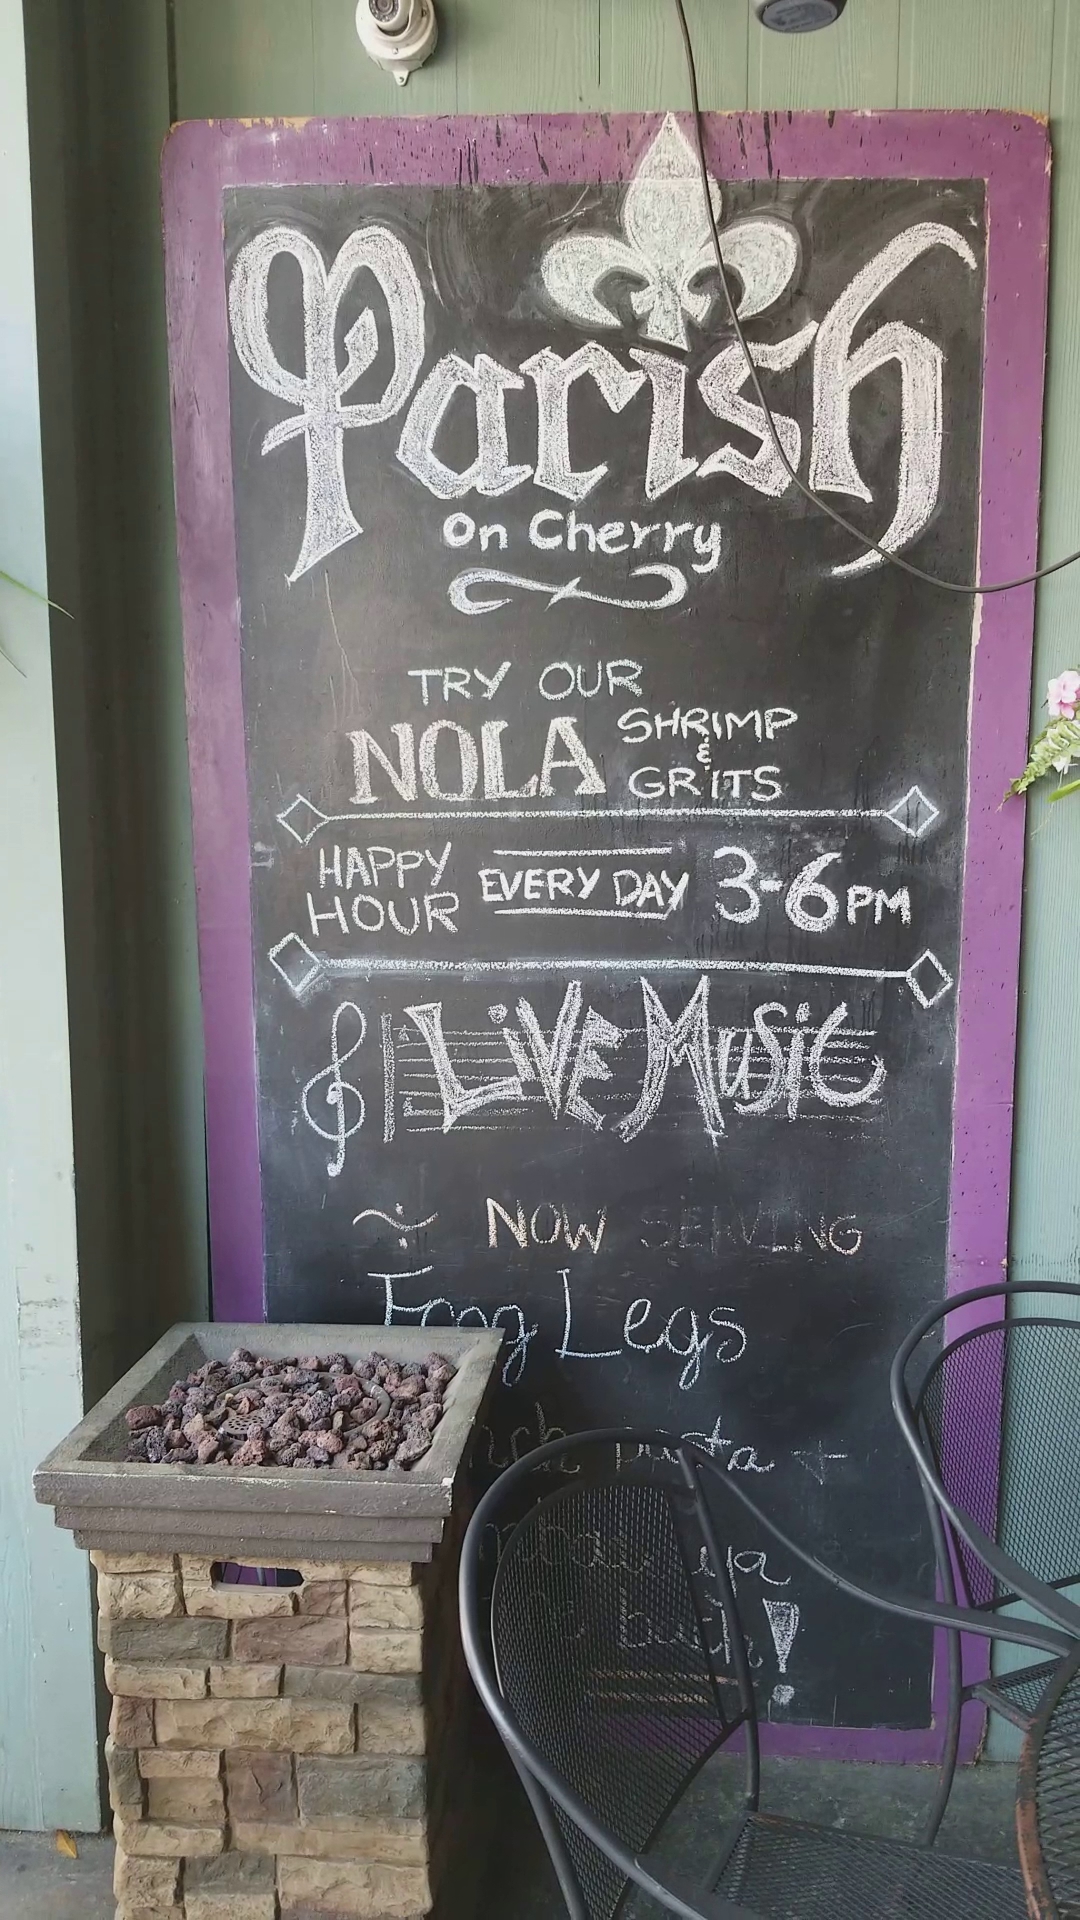 Parish
On Cherry
TRY OUR
NOLA SHRIMP
&
GRITS
HAPPY
HOUR EVERY DAY 3-6PM
LiVE MuSiC
NOW SERVING
Frog Legs
pasta +